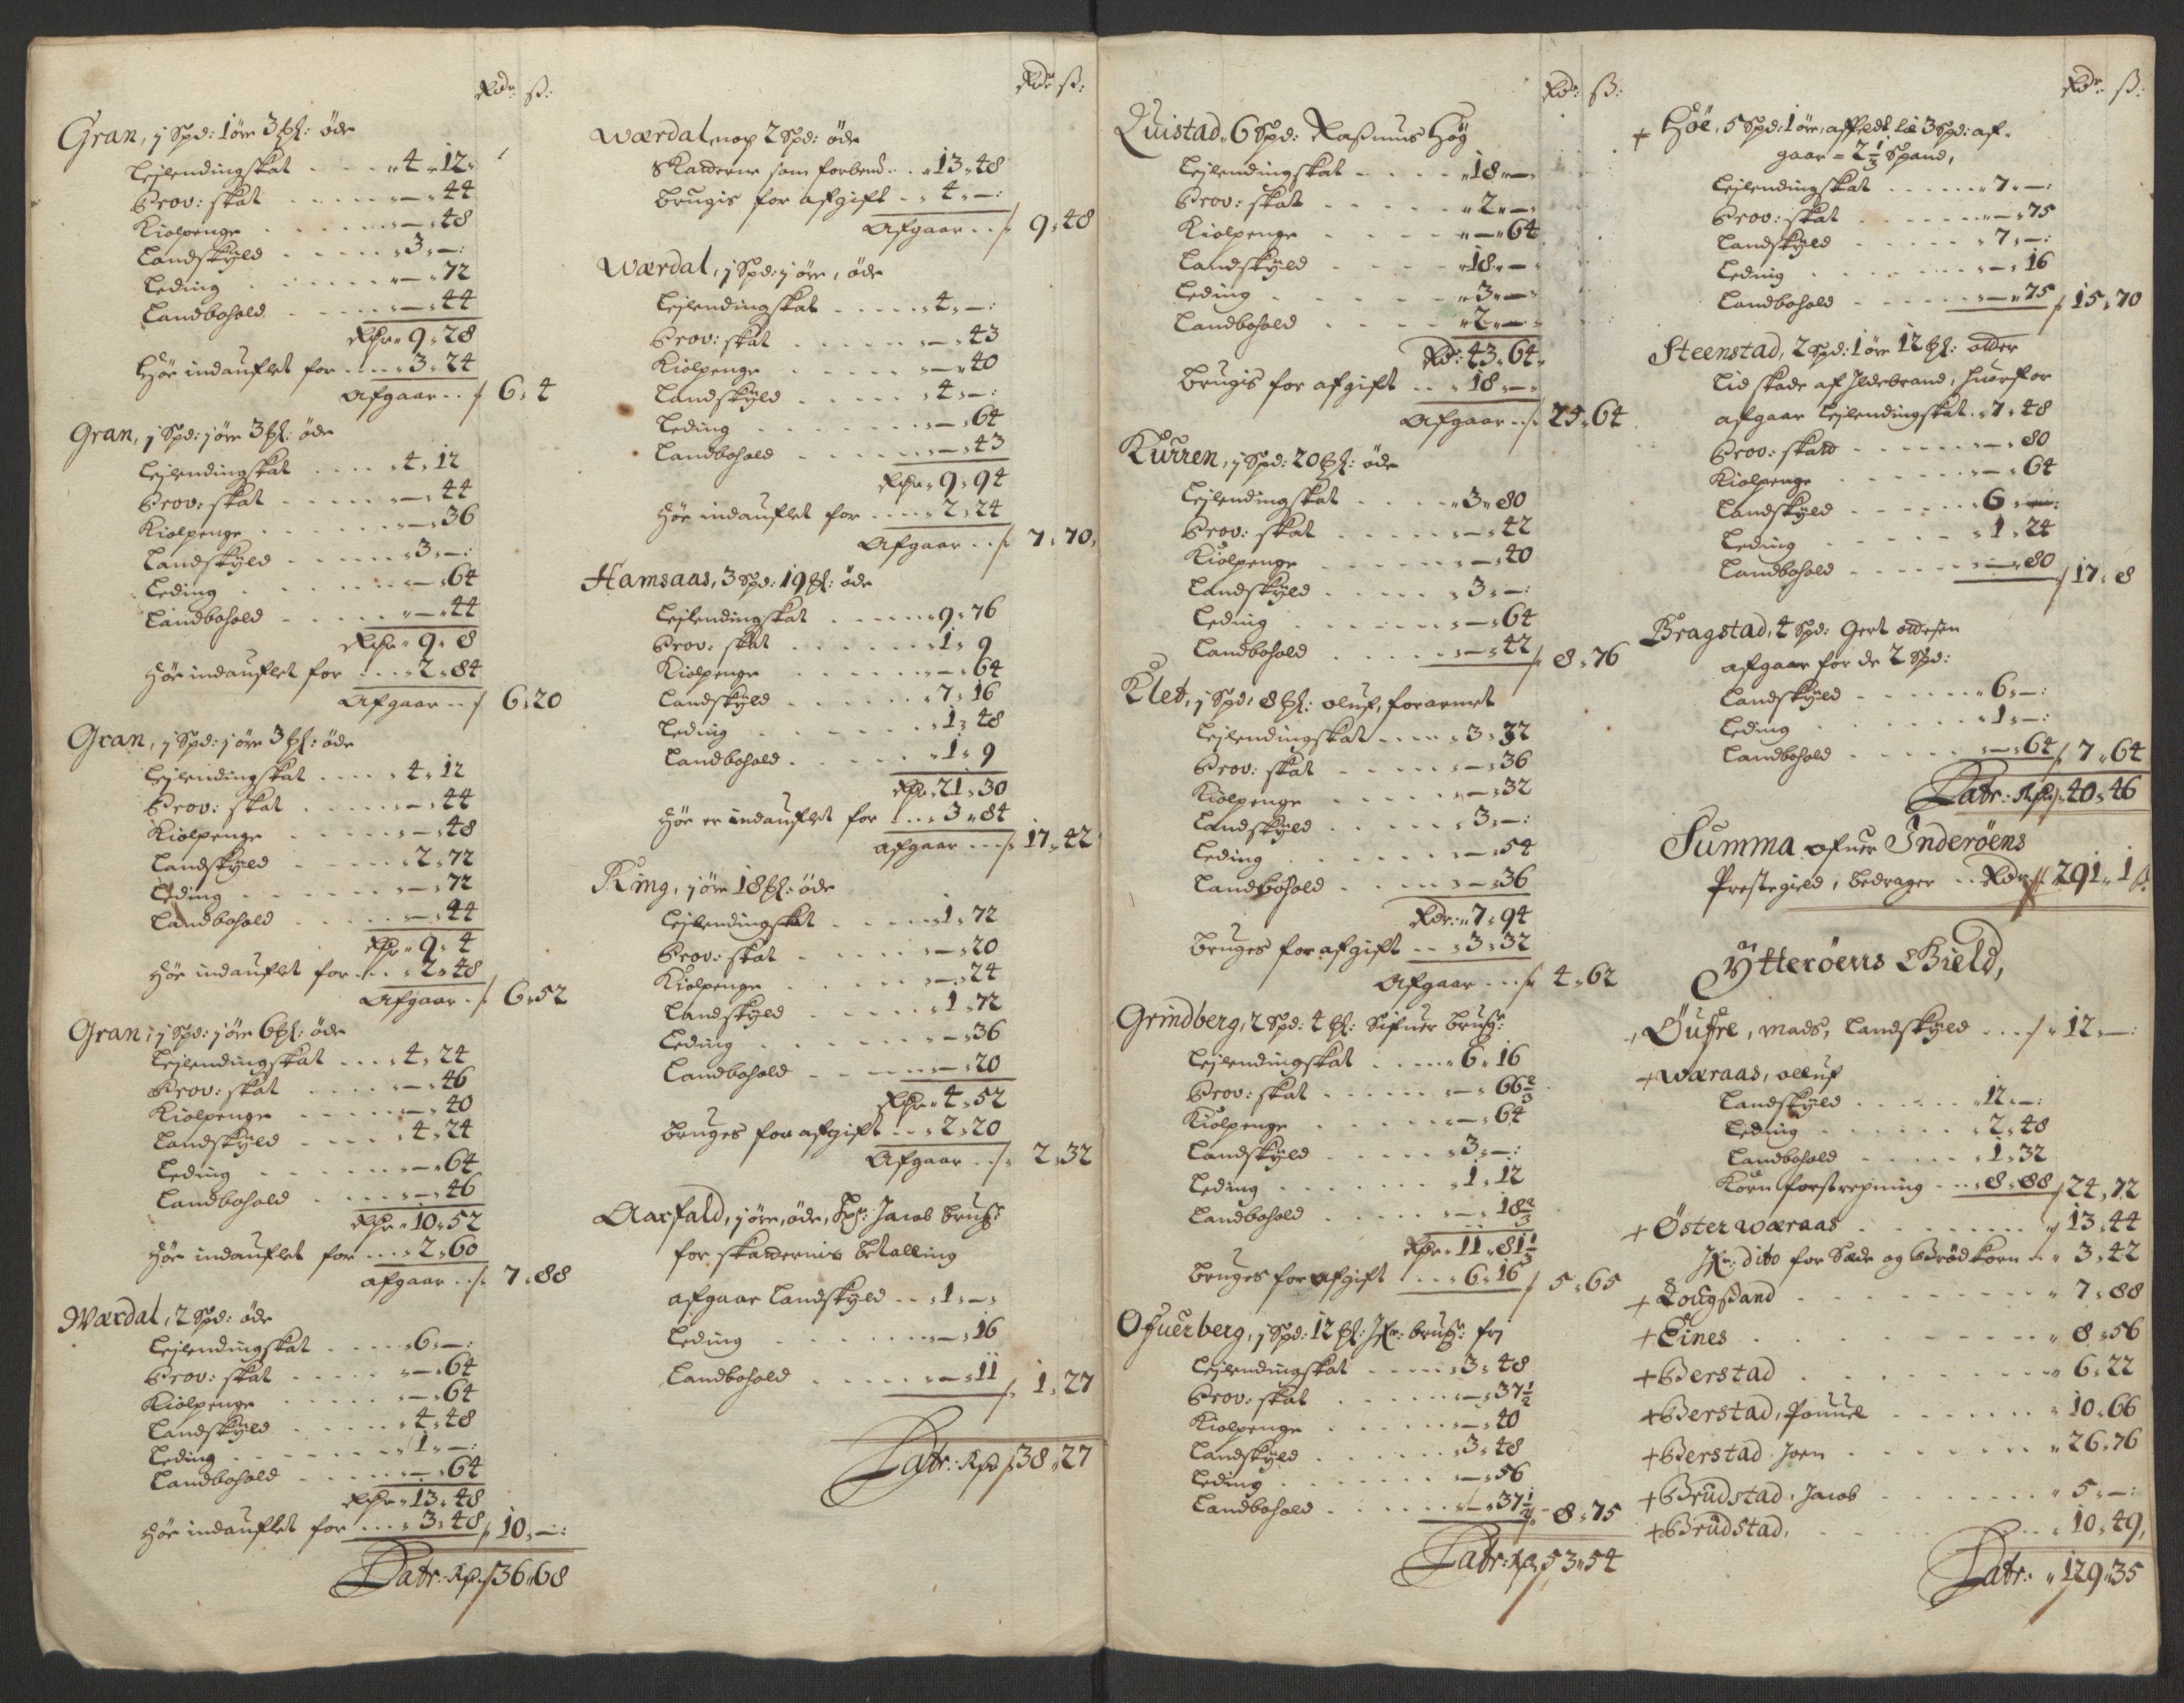 Rdr: ß:
Gran, j Spd: 1 öre 3 ℔: öde
Lejlendingskat .... 4 " 12
Prov: skat .... — " 44
Kiolpenge .... — " 48
Landskyld .... 3 " —:
Leding .... — " 72
Landbohold .... — " 44
Rdr " 9 " 28
Höe indauflet for .... 3 " 24
Afgaar .. 6 " 4
Gran, j Spd: j öre 3 ℔: öde
Lejlendingskat .... 4 " 12
Prov: skat .... — " 44
Kiolpenge .... — " 36
Landskyld .... 3 " —:
Leding .... — " 64
Landbohold .... — " 44
Rdr " 9 " 8
Höe indauflet for .... 2 " 84
Afgaar .. 6 " 20
Gran, j Spd: j öre 3 ℔: öde
Lejlendingskat .... 4 " 12
Prov: skat .... — " 44
Kiolpenge .... — " 48
Landskyld .... 2 " 72
Leding .... — " 72
Landbohold .... — " 44
Rdr " 9 " 4
Höe indauflet for .... 2 " 48
Afgaar .. 6 " 52
Gran, j Spd: j öre 6 ℔: öde
Lejlendingskat .... 4 " 24
Prov: skat .... — " 46
Kiolpenge .... — " 40
Landskyld .... 4 " 24
Leding .... — " 64
Landbohold .... — " 46
Rdr " 10 " 52
Höe indauflet for .... 2 " 60
afgaar .. 7 " 88
Wærdal, 2 Spd: öde
Lejlendingskat .... 6 " —:
Prov: skat .... — " 64
Kiolpenge .... — " 64
Landskyld .... 4 " 48
Leding .... 1 " —:
Landbohold .... — " 64
Rdr " 13 " 48
Höe indauflet for .... 3 " 48 10 " —:
Latr: Rdr 36 " 68
Rdr ß:
Wærdal noch 2 Spd: öde
Skatterne som forbend .. 13 " 48
Brugis for afgift .. 4 " —:
Afgaar .. 9 " 48
Wærdal, j Spd: j öre, öde
Lejlendingskat .... 4 " —:
Prov: skat .... — " 43
Kiolpenge .... — " 40
Landskyld .... 4 " —:
Leding .... — " 64
Landbohold .... — " 43
Rdr " 9 " 94
Höe indauflet for .... 2 " 24
Afgaar .. 7 " 70
Hamsaas, 3 Spd: 19 ℔: öde
Lejlendingskat .... 9 " 76
Prov: skat .... 1 " 9
Kiolpenge .... — " 64
Landskyld .... 7 " 16
Leding .... 1 " 48
Landbohold .... 1 " 9
Rdr " 21 " 30
Höe er indauflet for .... 3 " 84
afgaar ... 17 " 42
Ring, j öre 18 ℔: öde
Lejlendingskat .... 1 " 72
Prov: skat .... — " 20
Kiolpenge .... — " 24
Landskyld .... 1 " 72
Leding .... — " 36
Landbohold .... — " 20
Rdr " 4 " 52
bruges for afgift ... 2 " 20
Afgaar .. 2 " 32
Aarfald, j öre, öde, Jacob brug:
for skatternis betalling
afgaar Landskyld .. 1 " —:
Leding .... — " 16
Landbohold .... — " 11 1 " 27
Latr: Rdr 38 " 27
Rdr: ß:
Quistad, 6 Spd: Rasmus Höy
Lejlendingskat .... 18 " —:
Prov: skat .... 2 " —:
Kiolpenge .... — " 64
Landskyld .... 18 " —:
Leding .... 3 " —:
Landbohold .... 2 " —:
Rdr: 43 " 64
brugis for afgift .. 18 " —:
Afgaar .. 25 " 64
Kurren, j Spd: 20 ℔: öde
Lejlendingskat .... 3 " 80
Prov: skat .... — " 42
Kiolpenge .... — " 40
Landskyld .... 3 " —:
Leding .... — " 64
Landbohold .... — " 42 8 " 76
Klet, j Spd: 8 ℔: oluf, forarmet
Lejlendingskat .... 3 " 32
Prov: skat .... — " 36
Kiolpenge .... — " 32
Landskyld .... 3 " —:
Leding .... — " 54
Landbohold .... — " 36
Rdr: " 7 " 94
bruges for afgift .. 3 " 32
Afgaar ... 4 " 62
Grindberg, 2 Spd: 4 ℔: Sifuer brug:
Lejlendingskat .... 6 " 16
Prov: skat .... — " 66 2/3
Kiolpenge .... — " 64
Landskyld .... 3 " —:
Leding .... 1 " 12
Landbohold .... — " 18 2/3
Rdr " 11 " 81 1/3
bruges for afgift .... 6 " 16 5 " 65
Ofuerberg, j Spd: 12 ℔: brug: frj
Lejlendingskat .... 3 " 48
Prov: skat .... — " 37 1/2
Kiolpenge .... — " 40
Landskyld .... 3 " 48
Leding .... — " 56
Landbohold .... — " 37 1/2 8 " 75
Latr: Rdr 53 " 54
Rdr ß:
+ Höe, 5 Spd: 1 öre, affeldt til 3 Spd: af-
gaar = 2 1/3 Spand,
Lejlendingskat .... 7 " —:
Prov: skat .... — " 75
Landskyld .... 7 " —:
Leding .... — " 16
Landbohold .... — " 75 15 " 70
Steenstad, 2 Spd: 1 öre 12 ℔: otter
Lid skade af Ildebrand, huorfor
afgaar Lejlendingskat .. 7 " 48
Prov: skatt .... — " 80
Kiolpenge .... — " 64
Landskyld .... 6 " —:
Leding .... 1 " 24
Landbohold .... — " 80 17 " 8
Bragstad, 4 Spd: Gert ottesen
afgaar for de 2 Spd:
Landskyld .... 6 " —:
Leding .... 1 " —:
Landbohold .... — " 64 7 " 64
Latr: Rdr 40 " 46
Summa ofuer Inderöens
Prestegield, bedrager .. Rdr 291 " 1 ß
Ytteröens Gield,
Öufre, Mads, Landskyld ... 12 " —:
+ Waraas, olluf
Landskyld .... 12 " —:
Leding .... 2 " 48
Landbohold .... 1 " 32
Korn forstrepning ... 8 " 88 24 " 72
+ Öster Wæraas .... 13 " 44
dito for Sæde og Brödkorn .. 3 " 42
+ Lougsand .... 7 " 88
+ Eines .... 8 " 56
+ Berstad .... 6 " 22
+ Berstad, Pouuel .... 10 " 66
+ Berstad Joen .... 26 " 76
+ Brudstad, Jacob .... 5 " —:
+ Brudstad, .... 10 " 49
Latr: " 129 " 35